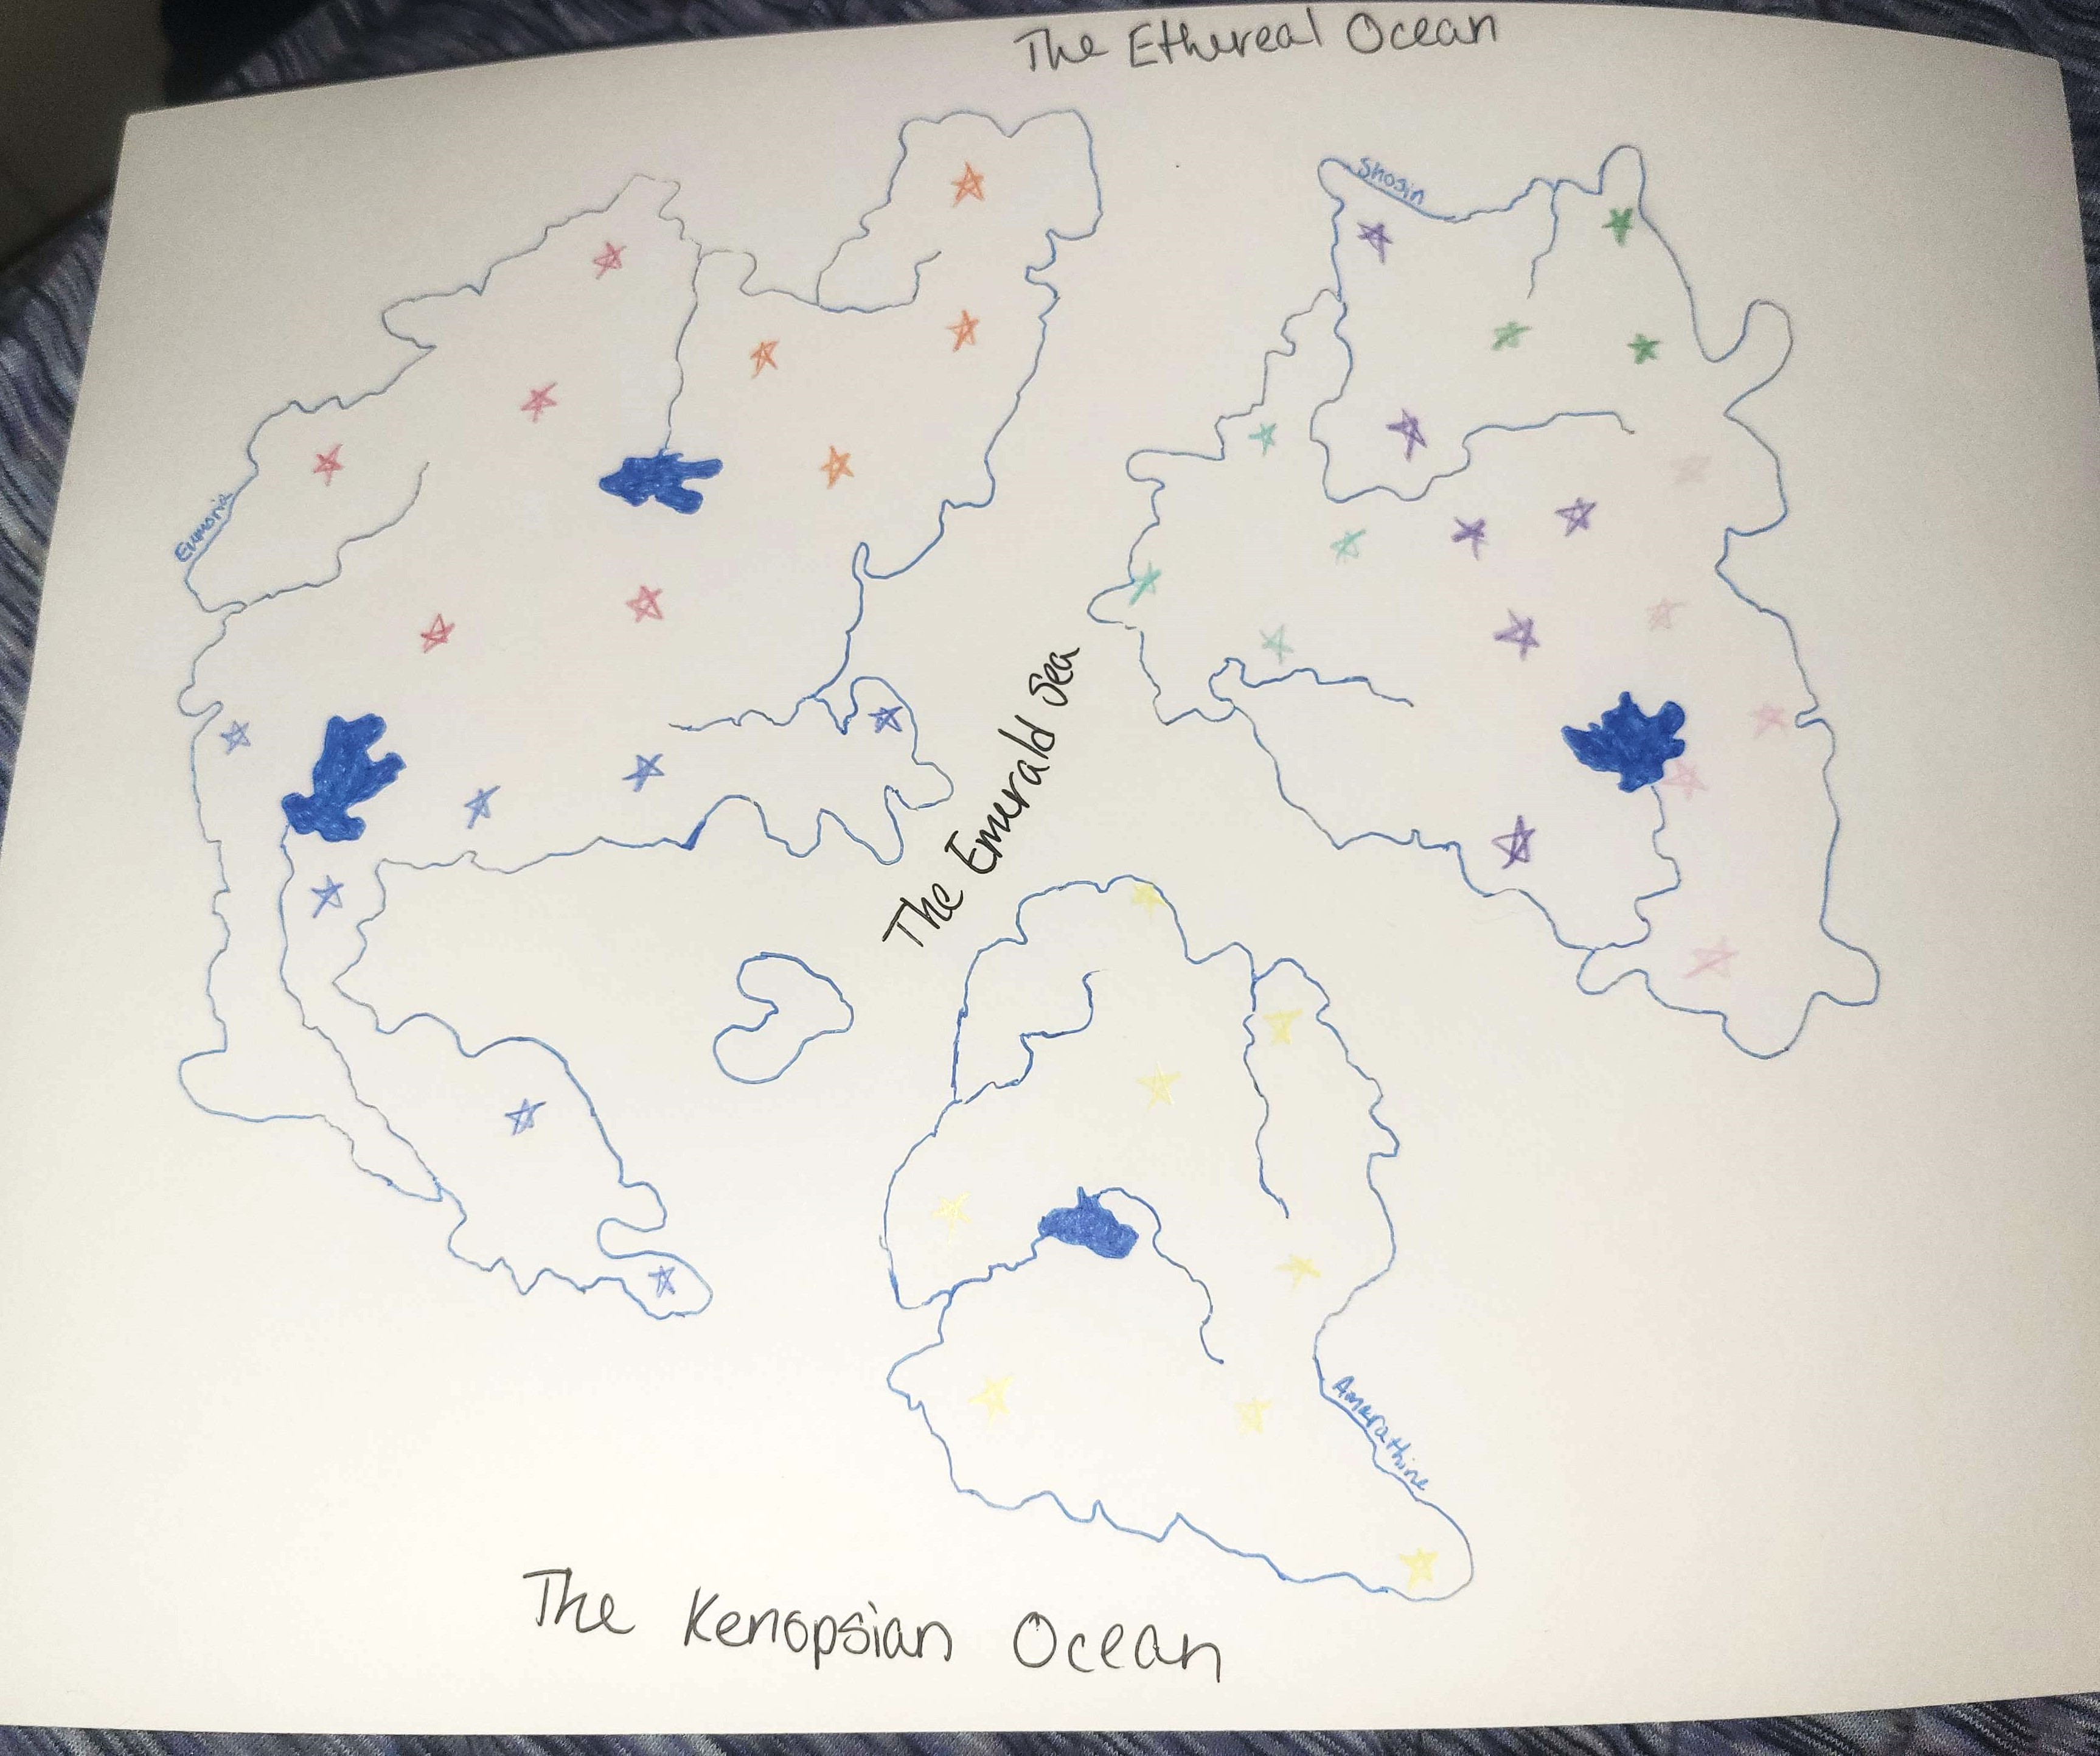 The Ethereal Ocean
Shosin
Eumoria
The Emerald Sea
Amarathine
The Kenopsian Ocean